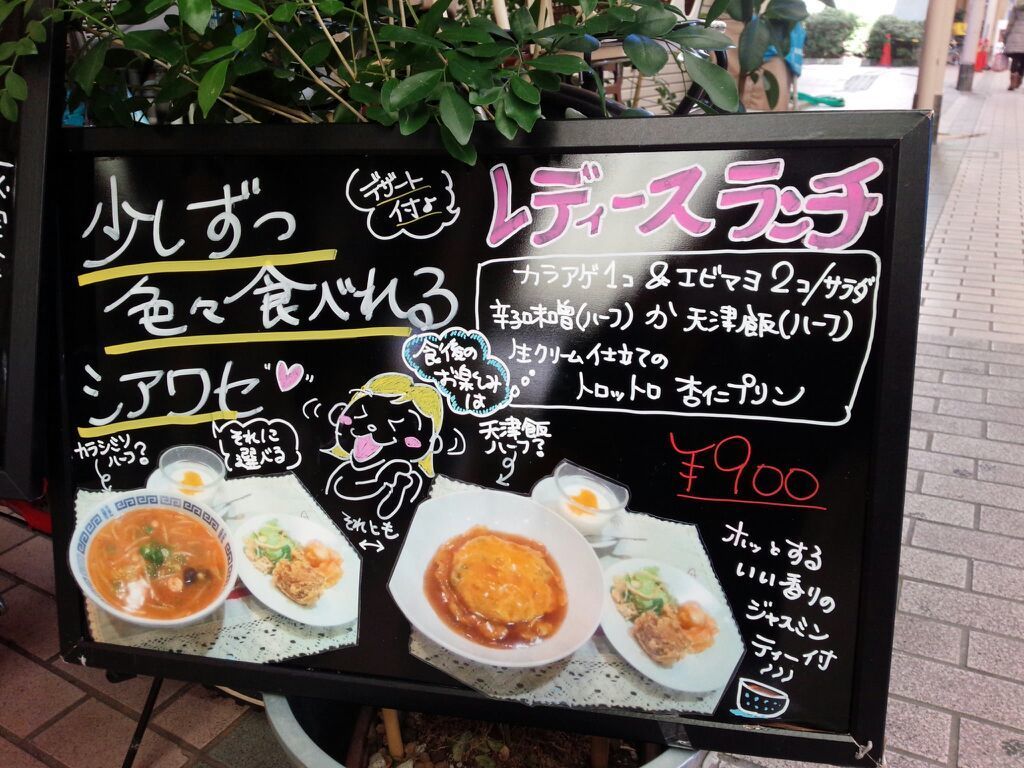 少しずつ
色々食べれる
シアワセ
デザート
付よ
レディースランチ
カラアゲ1コ & エビマヨ2コ/サラダ
辛子味噌(ハーフ) か 天津飯(ハーフ)
生クリーム仕立ての
トロットロ 杏仁プリン
食後の
お楽しみ
は
¥900
カラシミソ
ハーフ?
それに
選べる
それとも
天津飯
ハーフ?
ホッとする
いい香りの
ジャスミン
ティー付